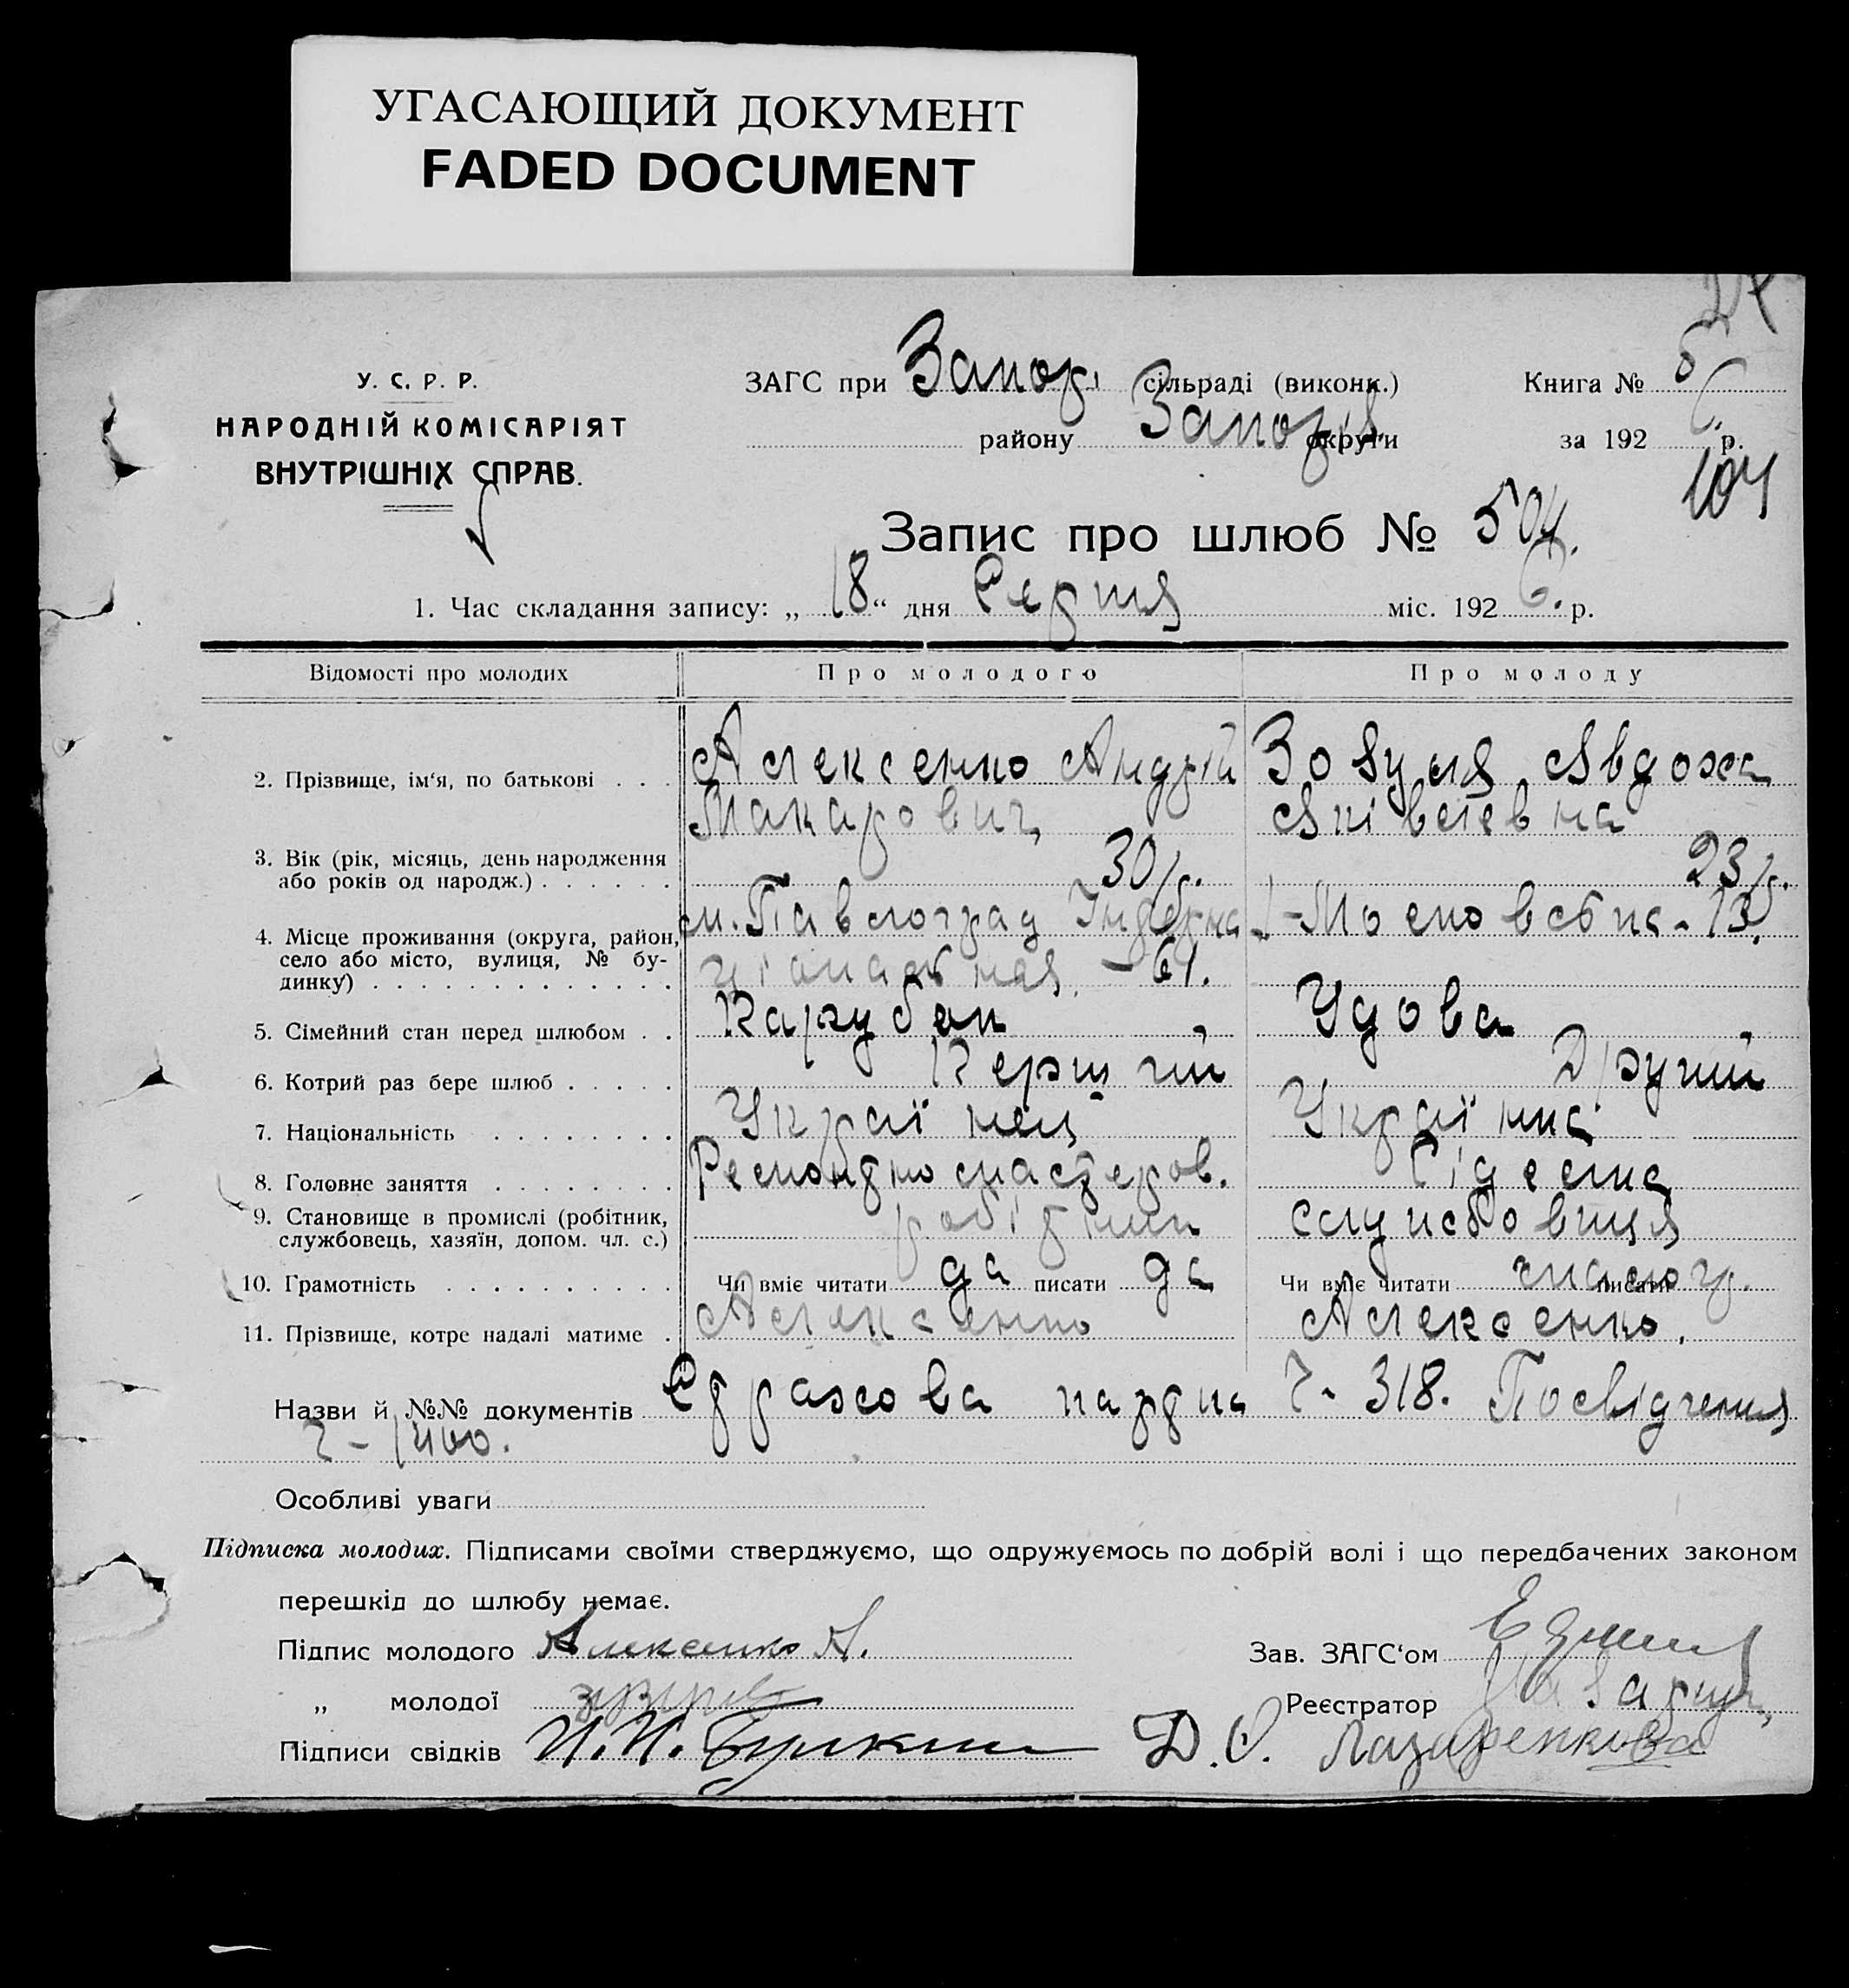 УГАСАЮЩИЙ ДОКУМЕНТ
FADED DOCUMENT
У. С. Р. Р.
НАРОДНІЙ КОМІСАРІЯТ
ВНУТРІШНІХ СПРАВ.
ЗАГС при Запор. сільраді (виконк.)
Книга № 5
району Запоріз. округи
за 192 6 р.
104
Запис про шлюб № 504.
1. Час складання запису: „ 18 “ дня Серпня міс. 192 6. р.
Відомості про молодих Про молодого Про молоду
2. Прізвище, ім‘я, по батькові . . . Алексенко Андрій Зозуля Явдоха
Макарович
3. Вік (рік, місяць, день народження
або років од народж.) . . . . . . 30 р. 23 р.
4. Місце проживання (округа, район, м. Павлоград 13.
село або місто, вулиця, № бу- - 61.
динку) . . . . . . . . . . . . .
5. Сімейний стан перед шлюбом . . Парубок Удова
6. Котрий раз бере шлюб . . . . . Перший Другий
7. Національність . . . . . . . . Українец Українка
8. Головне заняття . . . . . . . .
9. Становище в промислі (робітник, робітник службовиця
службовець, хазяїн, допом. чл. с.)
10. Грамотність . . . . . . . . . . Чи вміє читати да писати да Чи вміє читати писати
11. Прізвище, котре надалі матиме . Алексенко Алексенко.
Назви й №№ документів Страхова картка Ч- 318. Посвідчення
Ч-
Особливі уваги
Підписка молодих. Підписами своїми стверджуємо, що одружуємось по добрій волі і що передбачених законом
перешкід до шлюбу немає.
Підпис молодого Алексенко А.
Зав. ЗАГС‘ом
„ молодої
Реєстратор
Підписи свідків Д. С. Лазаренкова